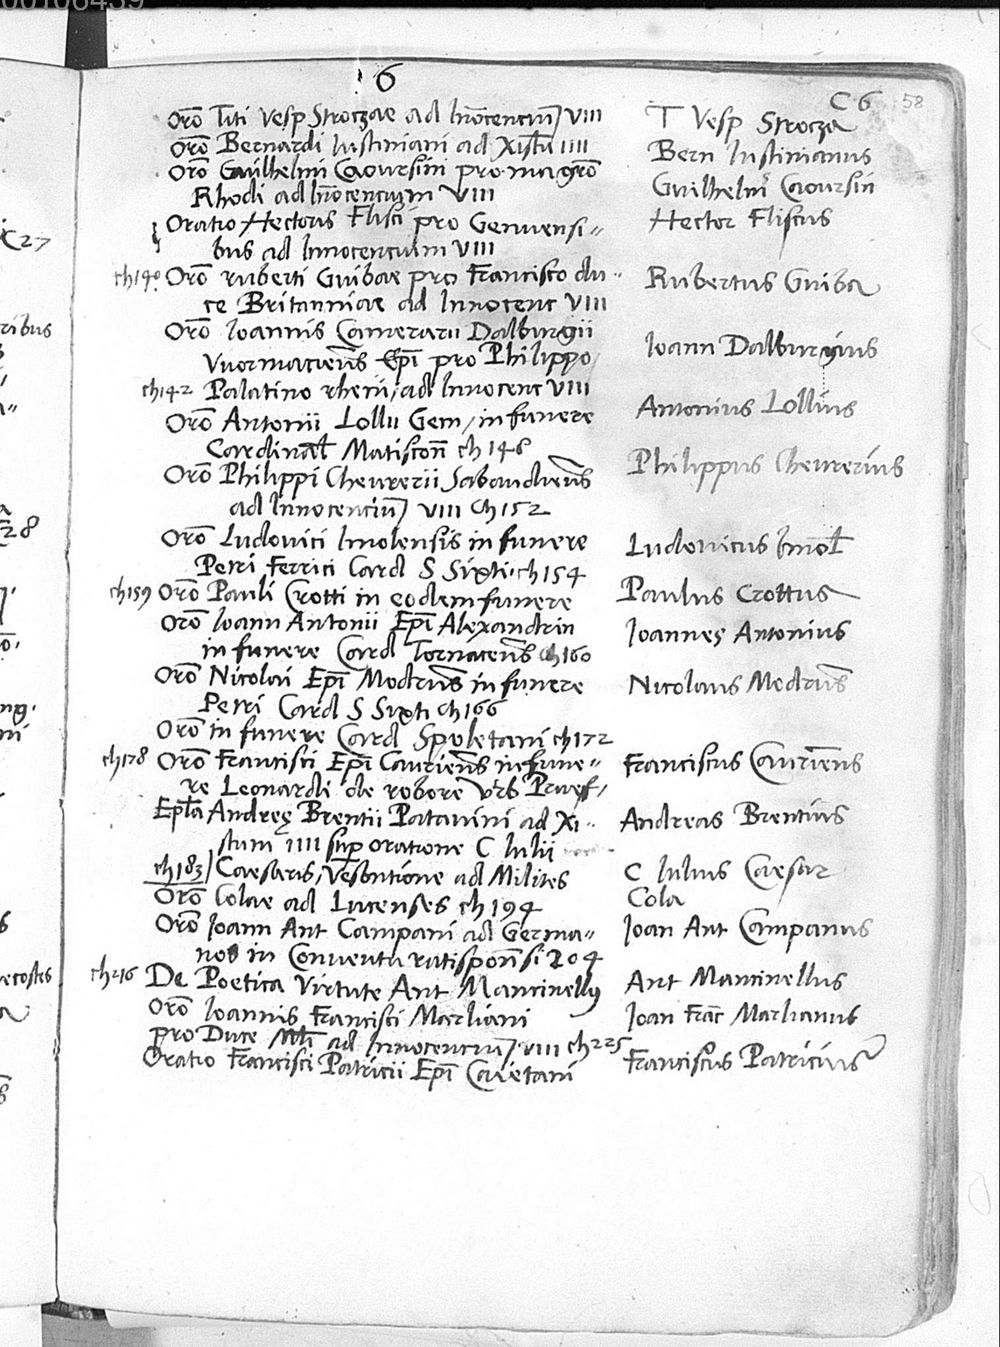 00106439
6
C 6 58
Orõ Titi Vesp Stroczae ad Inõcenciũ VIII
T Vesp Strocza
Orõ Bernardi Iustiniani ad Xistũ IIII
Bern Iustinianus
Orõ Guilhelmi Caoursini pro magrõ
Rhodi ad Inõcencium VIII
Guilhelm Caoursin
Oratio Hectoris Flisci pro Genuensi=
bus ad Innocencium VIII
Hector Fliscus
ch140 Orõ ruberti Guibae pro Francisco du=
ce Britanniae ad Innocenc VIII
Rubertus Guiba
Orõ Ioannis Camerarii Dalburgii
Vuormaciens̃ Ep̃i pro Philippo
Ioann Dalburgius
ch142 Palatino rheni, ad Innocenc VIII
Orõ Antonii Lollii Gem, in funere
Cardinal̃ Matiscoñ ch 148
Antonius Lollius
Orõ Philippi Cheurerii Sabaudiens̃
ad Innocenciũ VIII Ch 152
Philippus Cheurerius
Orõ Ludouici Imolensis in funere
Petri Ferrici Card S Sixti ch 154
Ludouicus Imol̃
ch159 Orõ Pauli Crotti in eodem funere
Paulus Crottus
Orõ Ioann Antonii Ep̃i Alexandrin
in funere Card Tornacens̃ ch 160
Ioannes Antonius
Orõ Nicolai Ep̃i Modrus̃ in funere
Petri Card S Sixti ch 166
Nicolaus Modrus̃
Orõ in funere Card Spoletani ch 172
ch178 Orõ Francisci Ep̃i Cauriens̃ in fune=
re Leonardi de robore Vrb Praef,
Franciscus Cauriens̃
Epl̃a Andreę Brentii Patauini ad Xi=
stum IIII sup̃ oratione C Iulii
Andreas Brentius
ch183 Caesaris, Vesontione ad Milites
C Iulius Caesar
Orõ Colae ad Lucenses ch 194
Cola
Orõ Ioann Ant Campani ad Germa=
nos in Conuentu ratispoñsi 204
Ioan Ant Campanus
ch216 De Poetica Virtute Ant Mancinellus
Ant Mancinellus
Orõ Ioannis Francisci Marliani
Ioan Frañc Marlianus
pro Duce Mlĩ ad Innocenciũ VIII ch225
Oratio Francisci Patricii Ep̃i Caietani
Franciscus Patricius